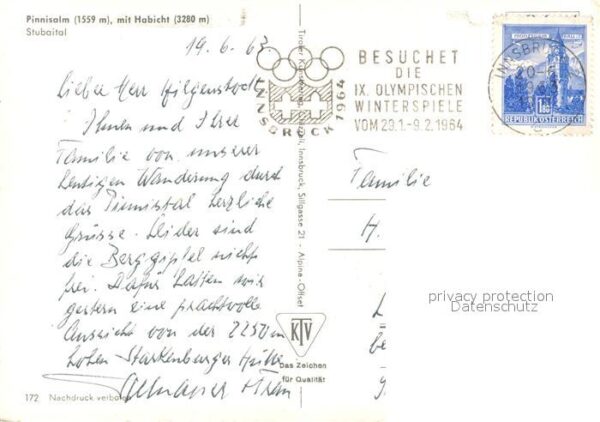 Pinnisalm (1559 m), mit Habicht (3280 m)
Stubaital
19.6.63
Lieber Herr Hilgenstock
Ihnen und Ihrer
Familie von unserer
heutigen Wanderung durch
das Pinnistal herzliche
Grüsse. Leider sind
die Berggipfel nicht
frei. Dafür hatten wir
gestern eine prachtvolle
Aussicht von der 2250 m
hohen Starkenburger Hütte
172 Nachdruck verboten
Tiroler Kunstverlag Innsbruck, Sillgasse 21 - Alpina-Offset
INNSBRUCK 1964
BESUCHET
DIE
IX. OLYMPISCHEN
WINTERSPIELE
VOM 29.1.-9.2.1964
INNSBRUCK
REPUBLIK ÖSTERREICH
Familie
H.
privacy protection
Datenschutz
KTV
Das Zeichen
für Qualität